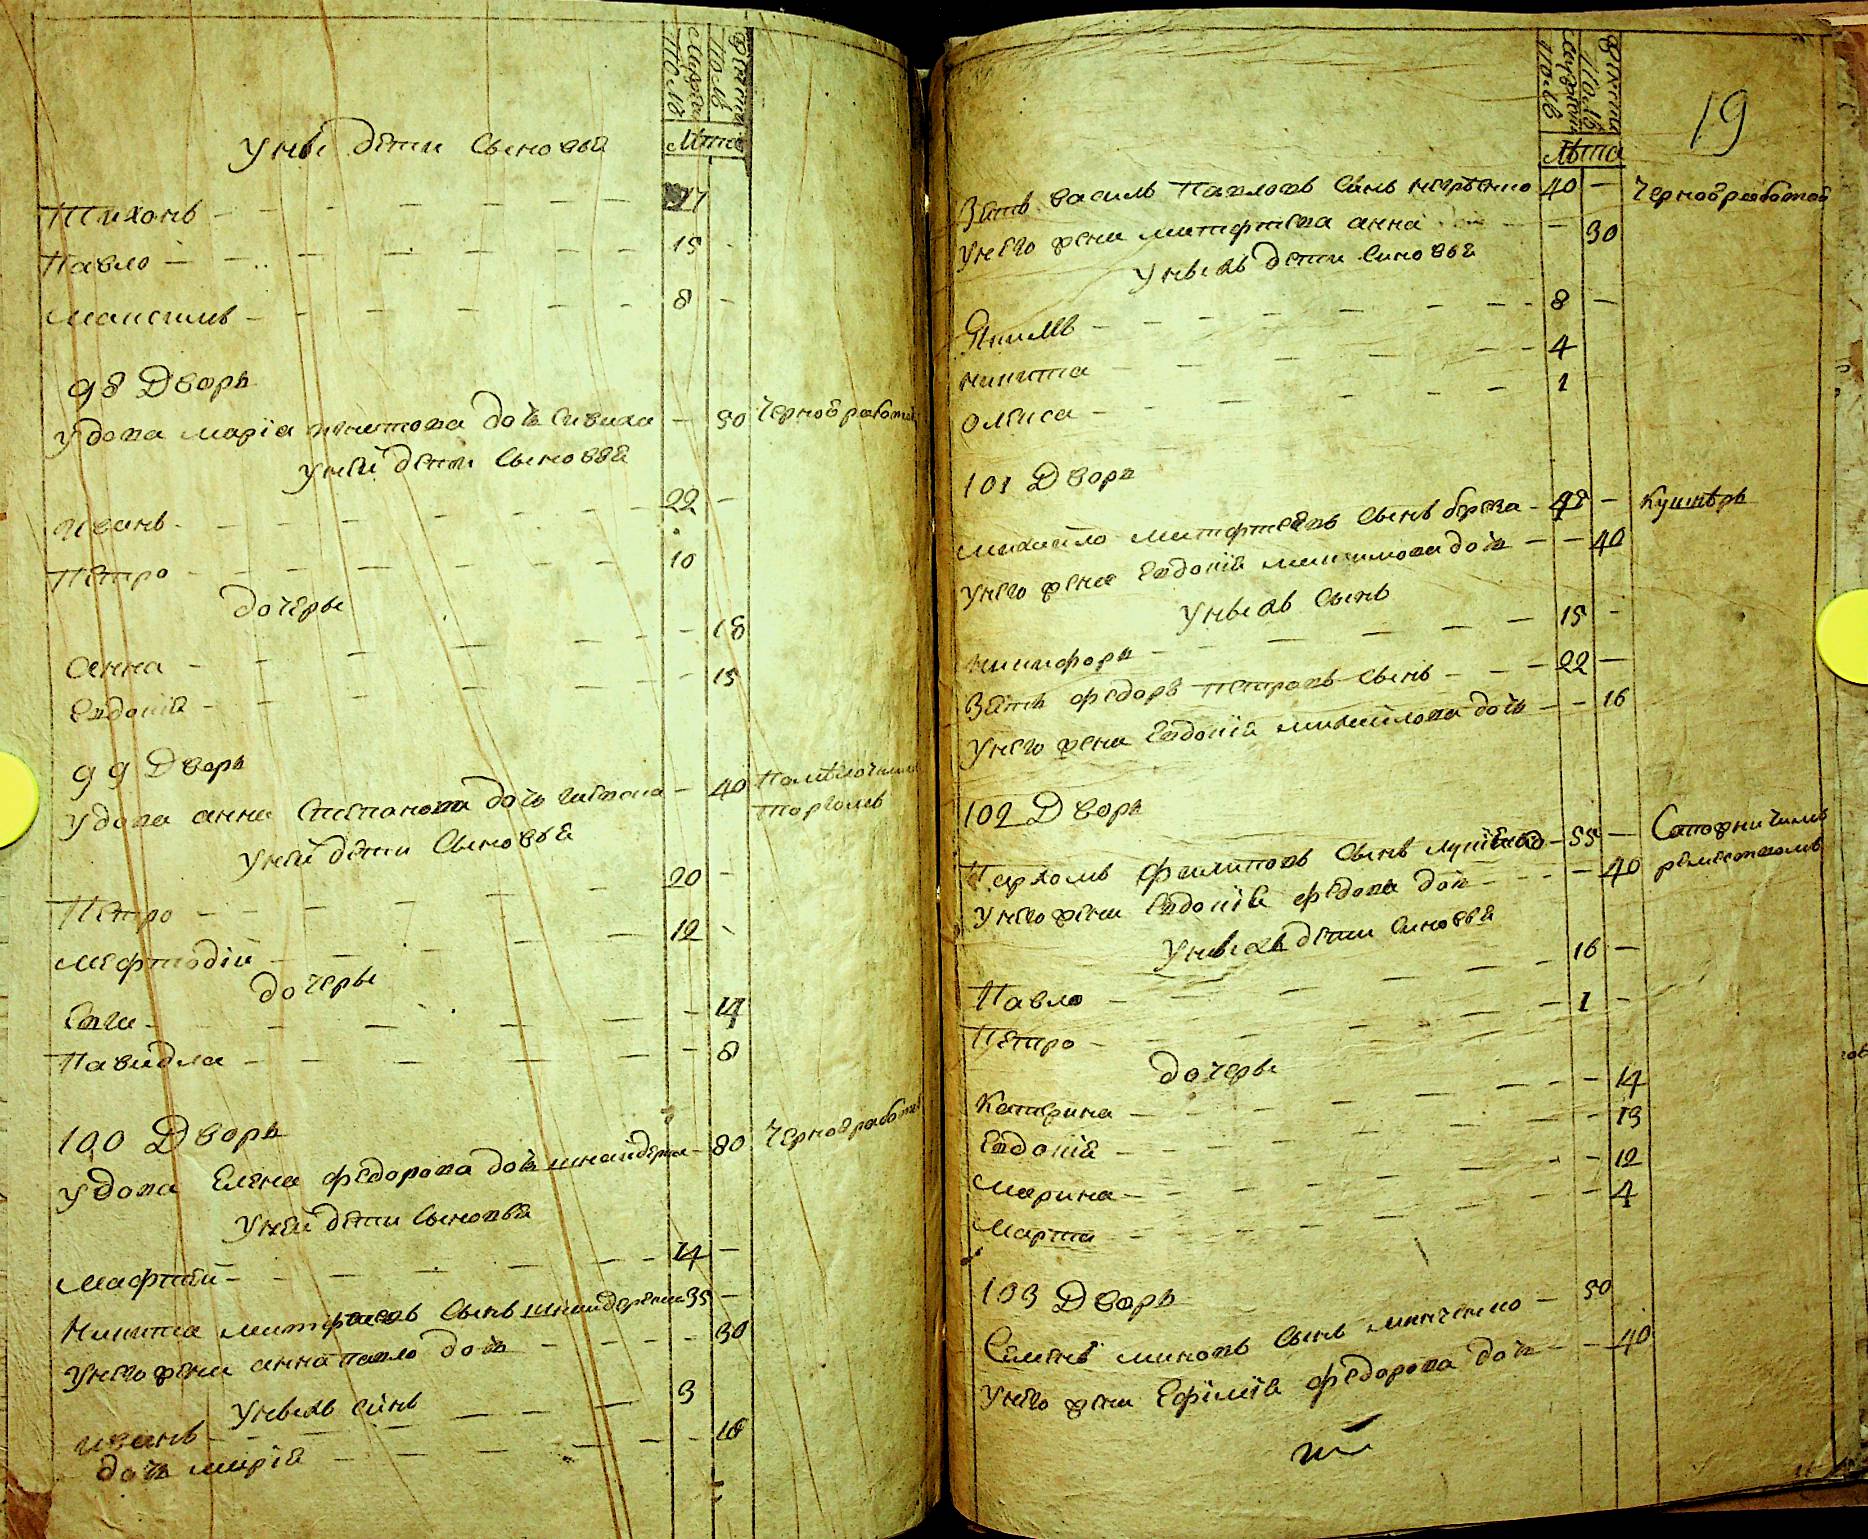 Мужска полѣ
Женска полѣ
лѣта
У ны дети сыновья
Тихонъ 17
Павло 15
Максимъ 8
98 Дворъ
Удова Марiа Никитова дочь 50 Чернообработой
У ней дети сыновья
Иванъ 22
Петро 10
дочеры
Анна 18
Евдокiя 15
99 Дворъ
Удова Анна Степанова дочь 40
торгомъ
У ней дети сыновья
Петро 20
Мефтодiй 12
дочеры
Евга 14
Павидла 8
100 Дворъ
Удова Елена Федорова дочь 80 Чернообработой
У ней дети сыновья
Мафтей 14
Никита сынъ 35
У него жена Анна Павло дочь 30
У ныхъ сынъ
Иванъ 3
дочь Марiя 18
Мужска полѣ
Женска полѣ
лѣта
19
Зять Василь Павловъ сынъ 40 Чернообработой
У него жена Митфтева Анна 30
У ныхъ дети синовья
Якимъ 8
Никита 4
Олекса 1
101 Дворъ
Михайло Митфтеевъ сынъ Береза 48 Кушнѣръ
У него жена Евдокiя Максимова дочь 40
У ныхъ сынъ
Никифоръ 15
Зять Федоръ Петровъ сынъ 22
У него жена Евдокiя Михайлова дочь 16
102 Дворъ
Пархомъ Филиповъ сынъ 55 Сапожничимъ
У него жена Евдокiя Федова дочь 40 ремествомъ
У ныхъ дети синовья
Павло 16
Петро 1
дочеры
Катерина 14
Евдокiя 13
Марина 12
Марта 4
103 Дворъ
Семенъ Миновъ сынъ 50
У него жена Ефимiя Федорова дочь 40